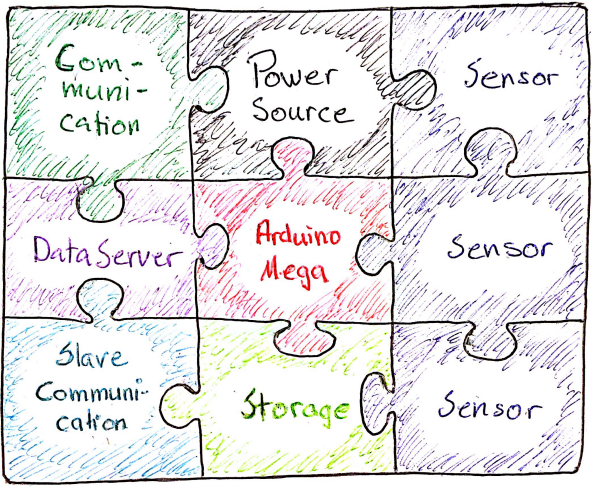 Com-
muni-
cation
Power
Source
Sensor
Data Server
Arduino
Mega
Sensor
Slave
Communi-
cation
Storage
Sensor